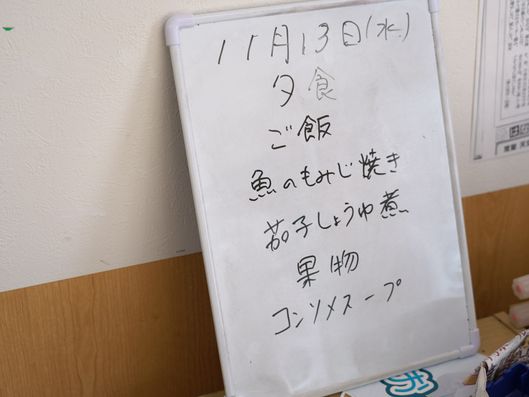 11月13日(水)
夕食
ご飯
魚のもみじ焼き
茄子しょうゆ煮
果物
コンソメスープ